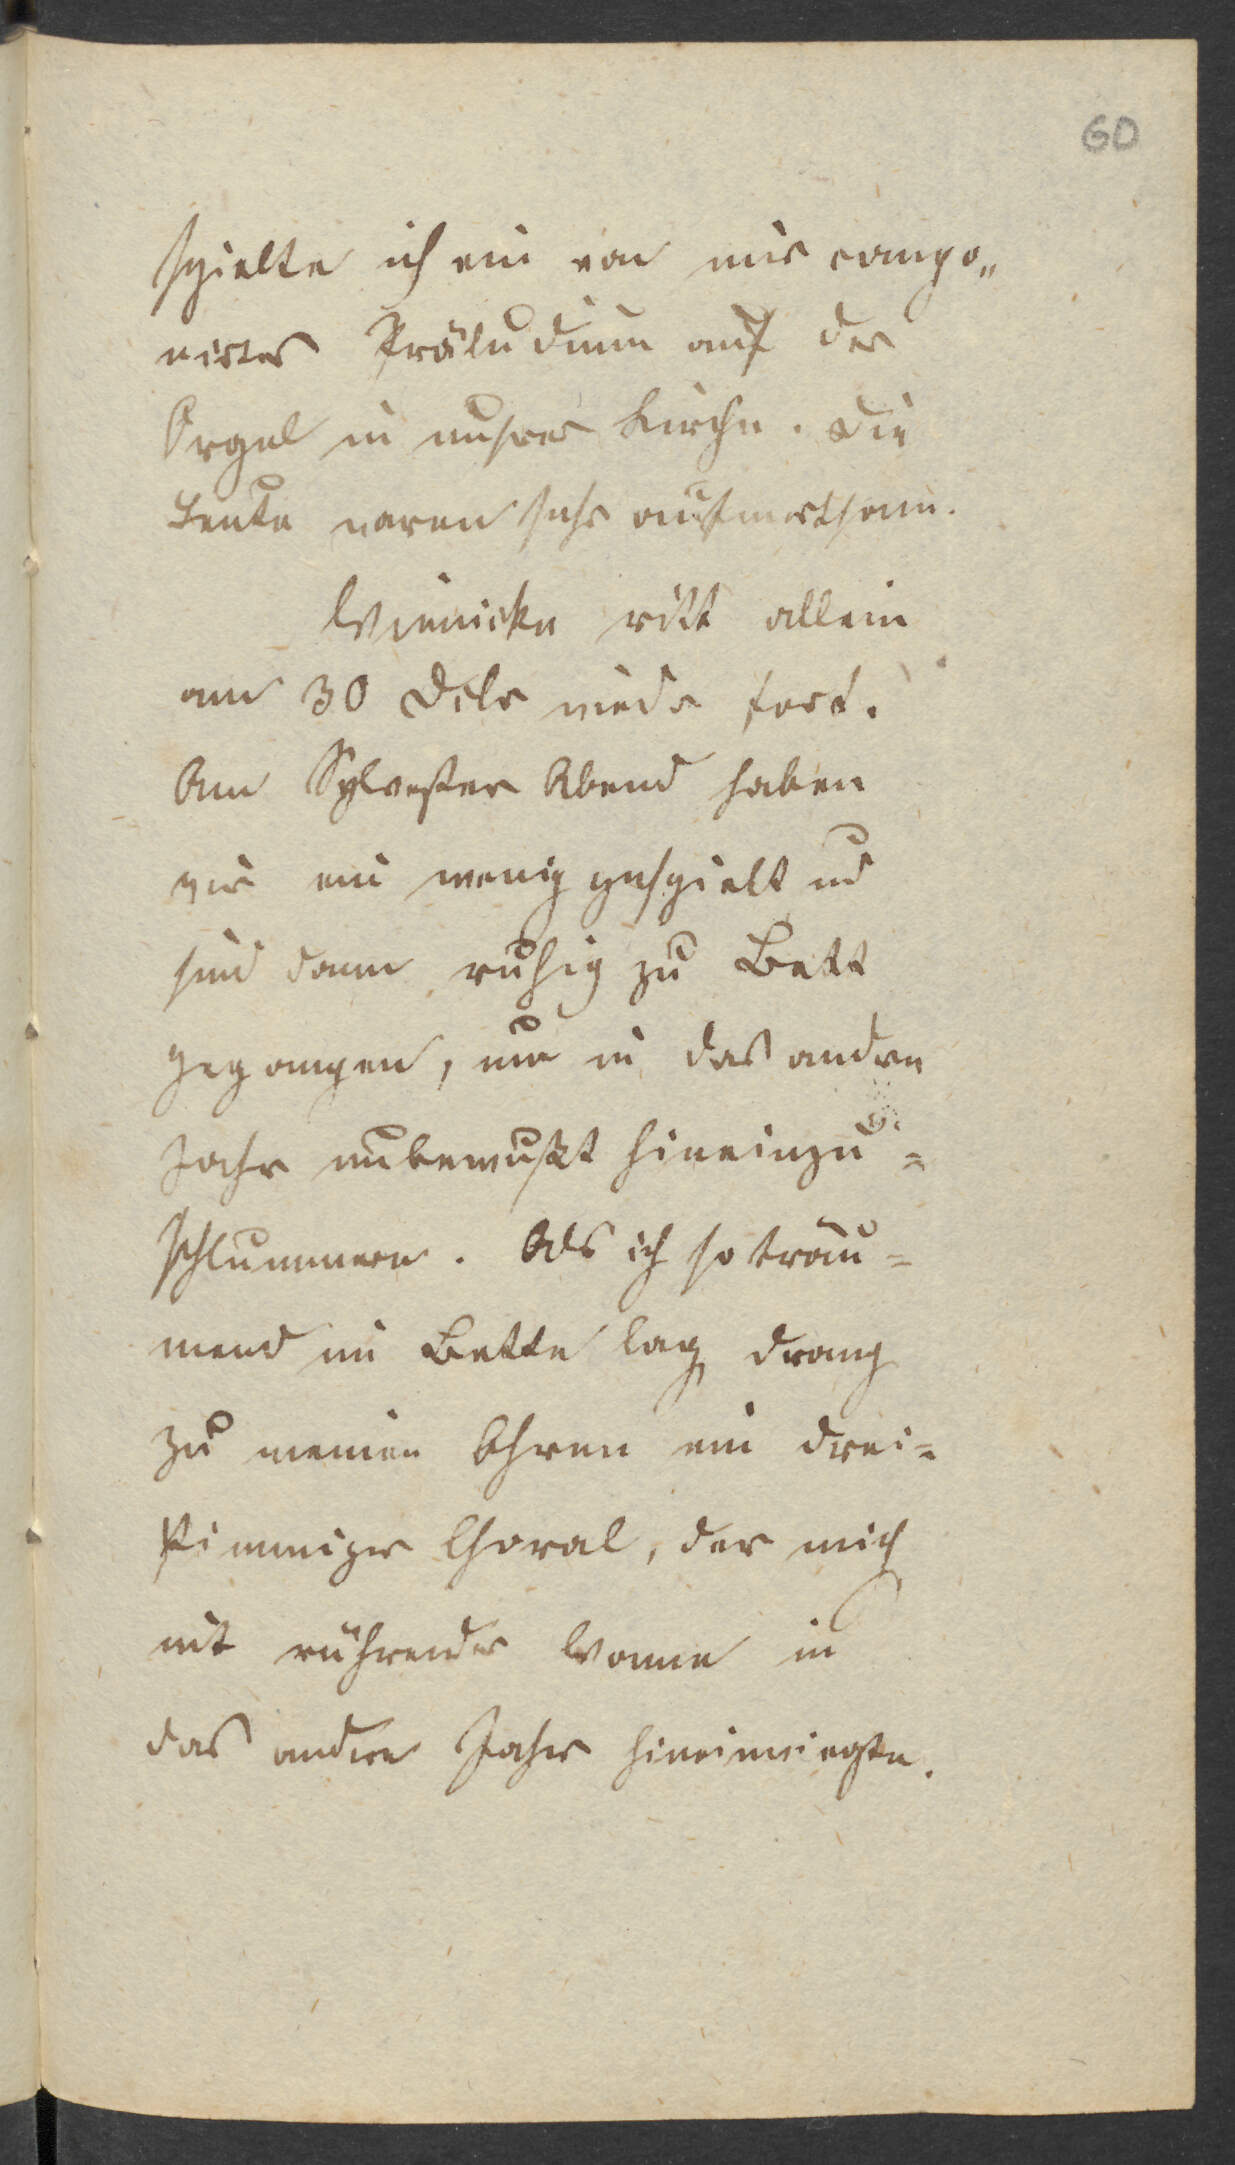 60
spielte ich ein von mir compo„
nirtes Präludium auf der
Orgel in unsrer Kirche. Die
Leute waren sehr aufmerksam.
Wienicke ritt allein
am 30 Dcbr wieder fort.
Am Sylvester Abend haben
wir ein wenig gespielt und
sind dann ruhig zu Bett
gegangen, um in das andre
Jahr unbewußt hineinzu=
schlummern. Als ich so träu=
mend im Bette lag drang
zu meinen Ohren ein drei=
stimmiger Choral, der mich
mit rührender Wonne in
das andre Jahr hineinwiegte.